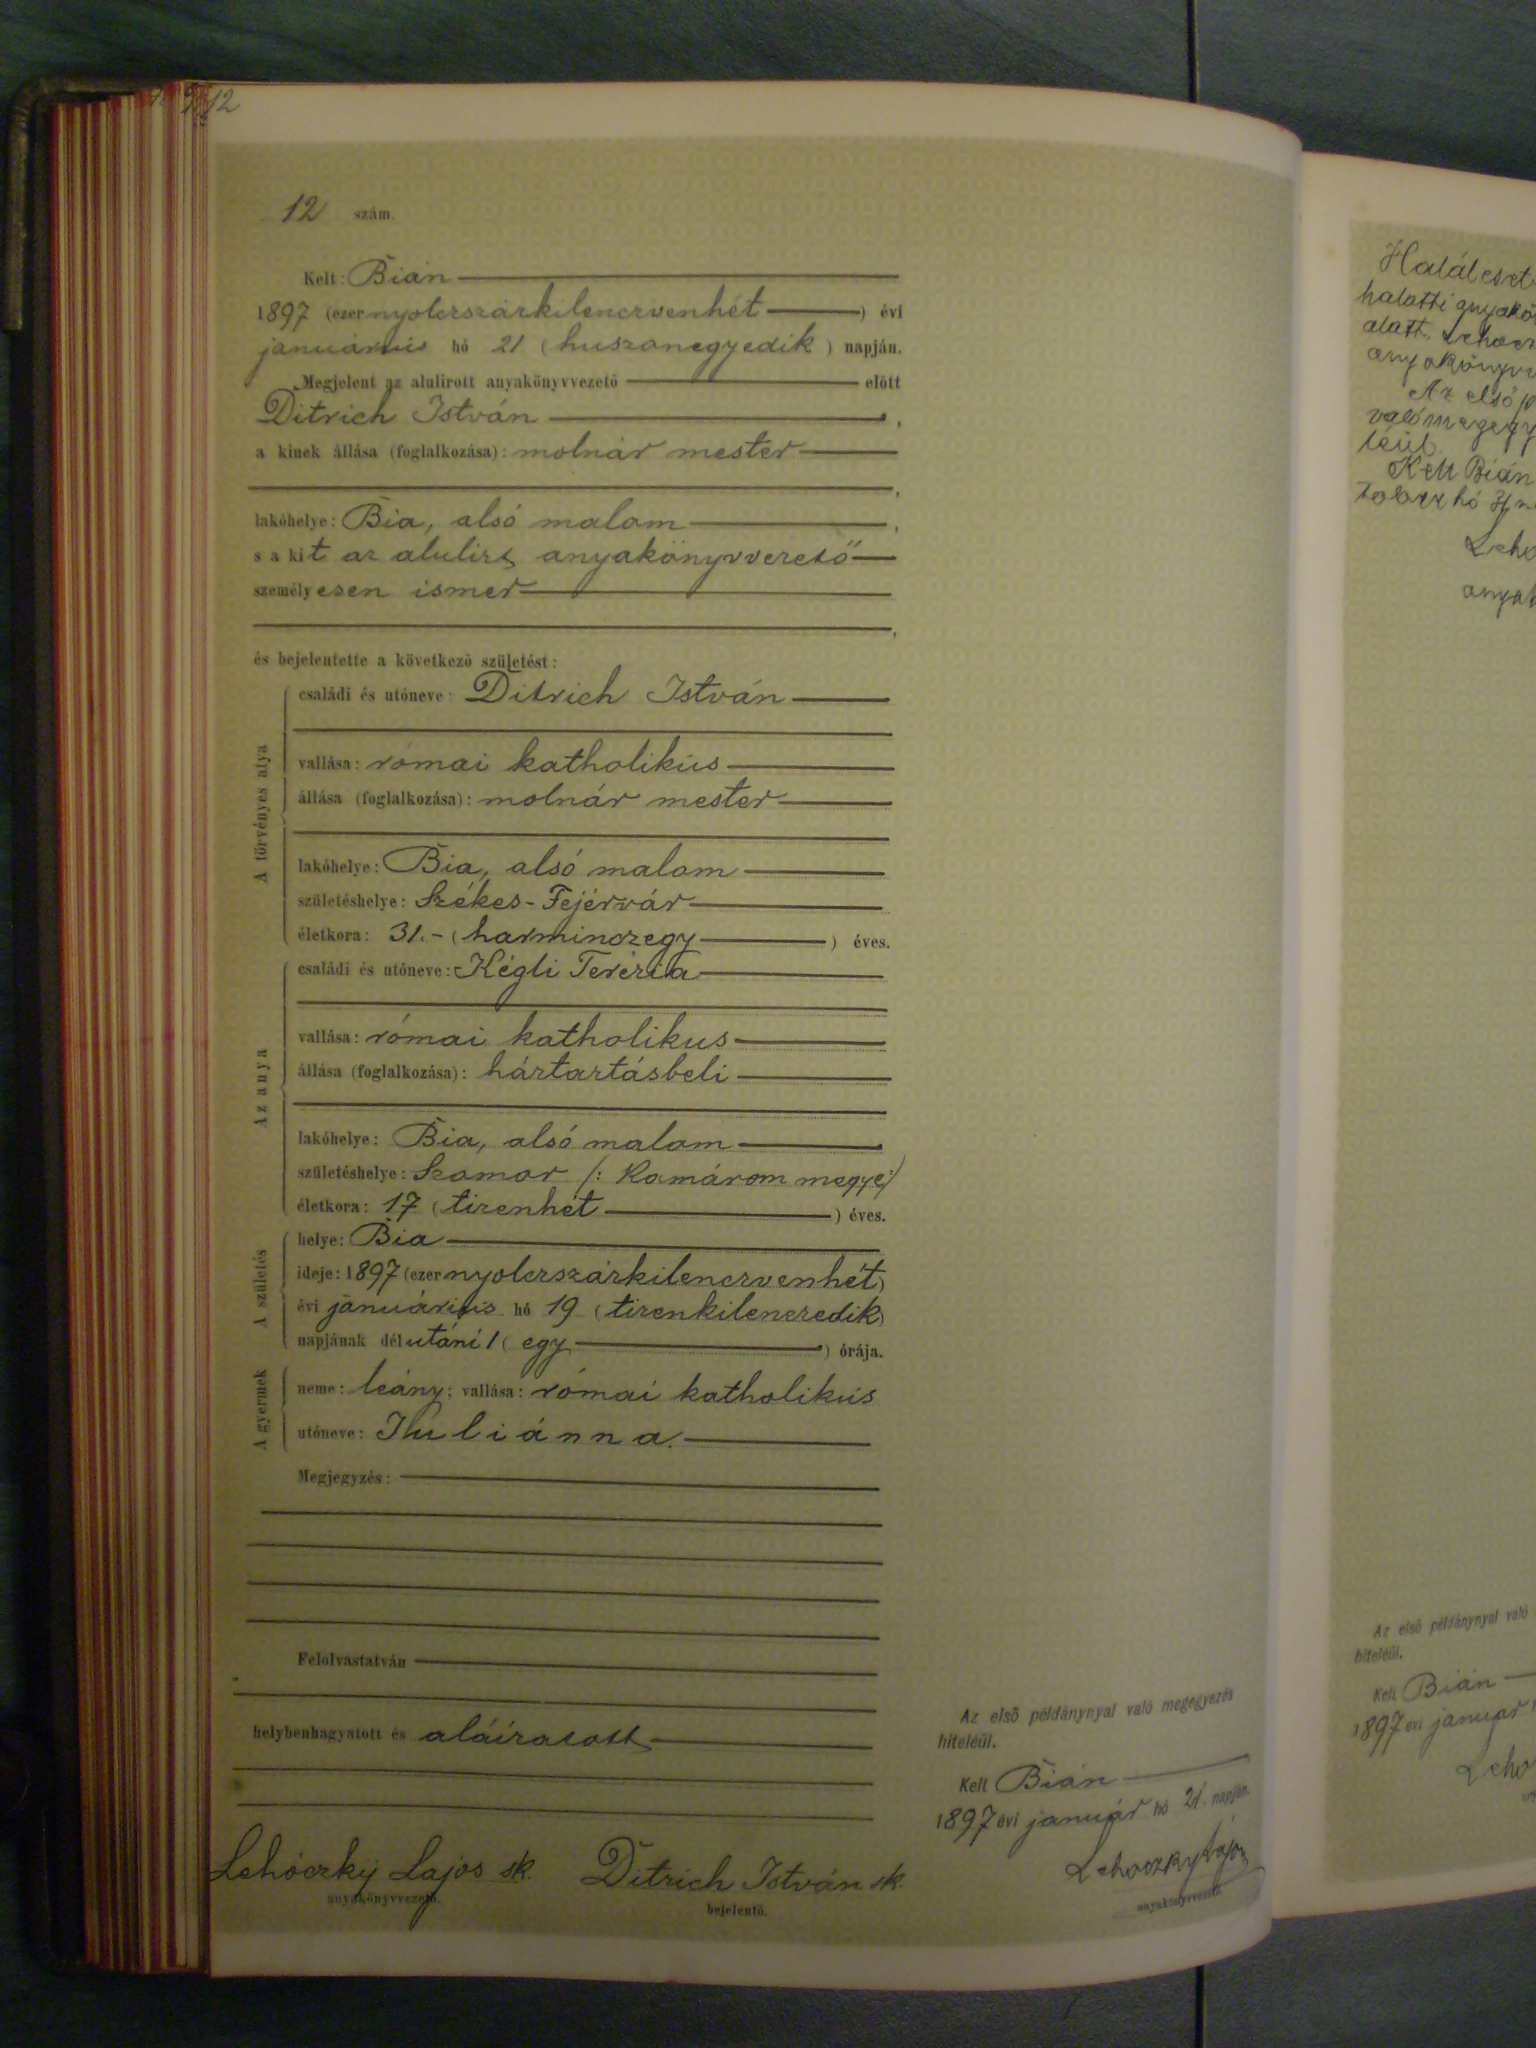 12
12 szám.
Kelt: Bián
1897 (ezernyolczszázkilenczvenhét) évi
januárius hó 21 (huszonegyedik) napján.
Megjelent az alulirott anyakönyvvezető előtt
Ditrich István,
a kinek állása (foglalkozása): molnár mester
,
lakóhelye: Bia, alsó malom,
s a kit az alulirt anyakönyvvezető
személyesen ismer
,
és bejelentette a következő születést:
A törvényes atya
családi és utóneve: Ditrich István
vallása: római katholikus
állása (foglalkozása): molnár mester
lakóhelye: Bia, alsó malom
születéshelye: Székes-Fejérvár
életkora: 31.- (harminczegy) éves.
Az anya
családi és utóneve: Kégli Terézia
vallása: római katholikus
állása (foglalkozása): háztartásbeli
lakóhelye: Bia, alsó malom
születéshelye: Szomor /: Komárom megye:/
életkora: 17 (tizenhét) éves.
A születés
helye: Bia
ideje: 1897 (ezernyolczszázkilenczvenhét)
évi januárius hó 19 (tizenkilenczedik)
napjának délutáni 1 (egy) órája.
A gyermek
neme: leány; vallása: római katholikus
utóneve: Juliánna.
Megjegyzés:
Felolvastatván
helybenhagyatott és aláíratott
Lehóczky Lajos sk.
anyakönyvvezető.
Ditrich István sk.
bejelentő.
Az első példánynyal való megegyezés
hiteléül.
Kelt Bián
1897 évi január hó 21. napján.
Lehoczky Lajos
anyakönyvvezető.
Haláleset
halotti anyakö
alatt. Lehocz
anyakönyv
Az első p
való megegy
léül.
Kelt Bián
hó
Leho
anyak
Az első példánynyal való
hiteléül.
Kelt Bián
1897 évi január
Leho